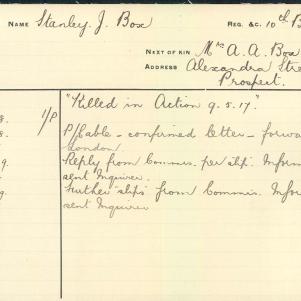 NAME Stanley. J. Box REG. &C. 10th B
NEXT OF KIN Mrs A. A. Box
ADDRESS Alexandra Stre
Prospect.
8. 1/P "Killed in Action 9.5.17."
8. P/Cable - confirmed letter - forwa
London
9. Reply from Commis. per slip. Inform
sent Inquirer.
9. Further "slips" from Commis. Infor
sent Inquirer